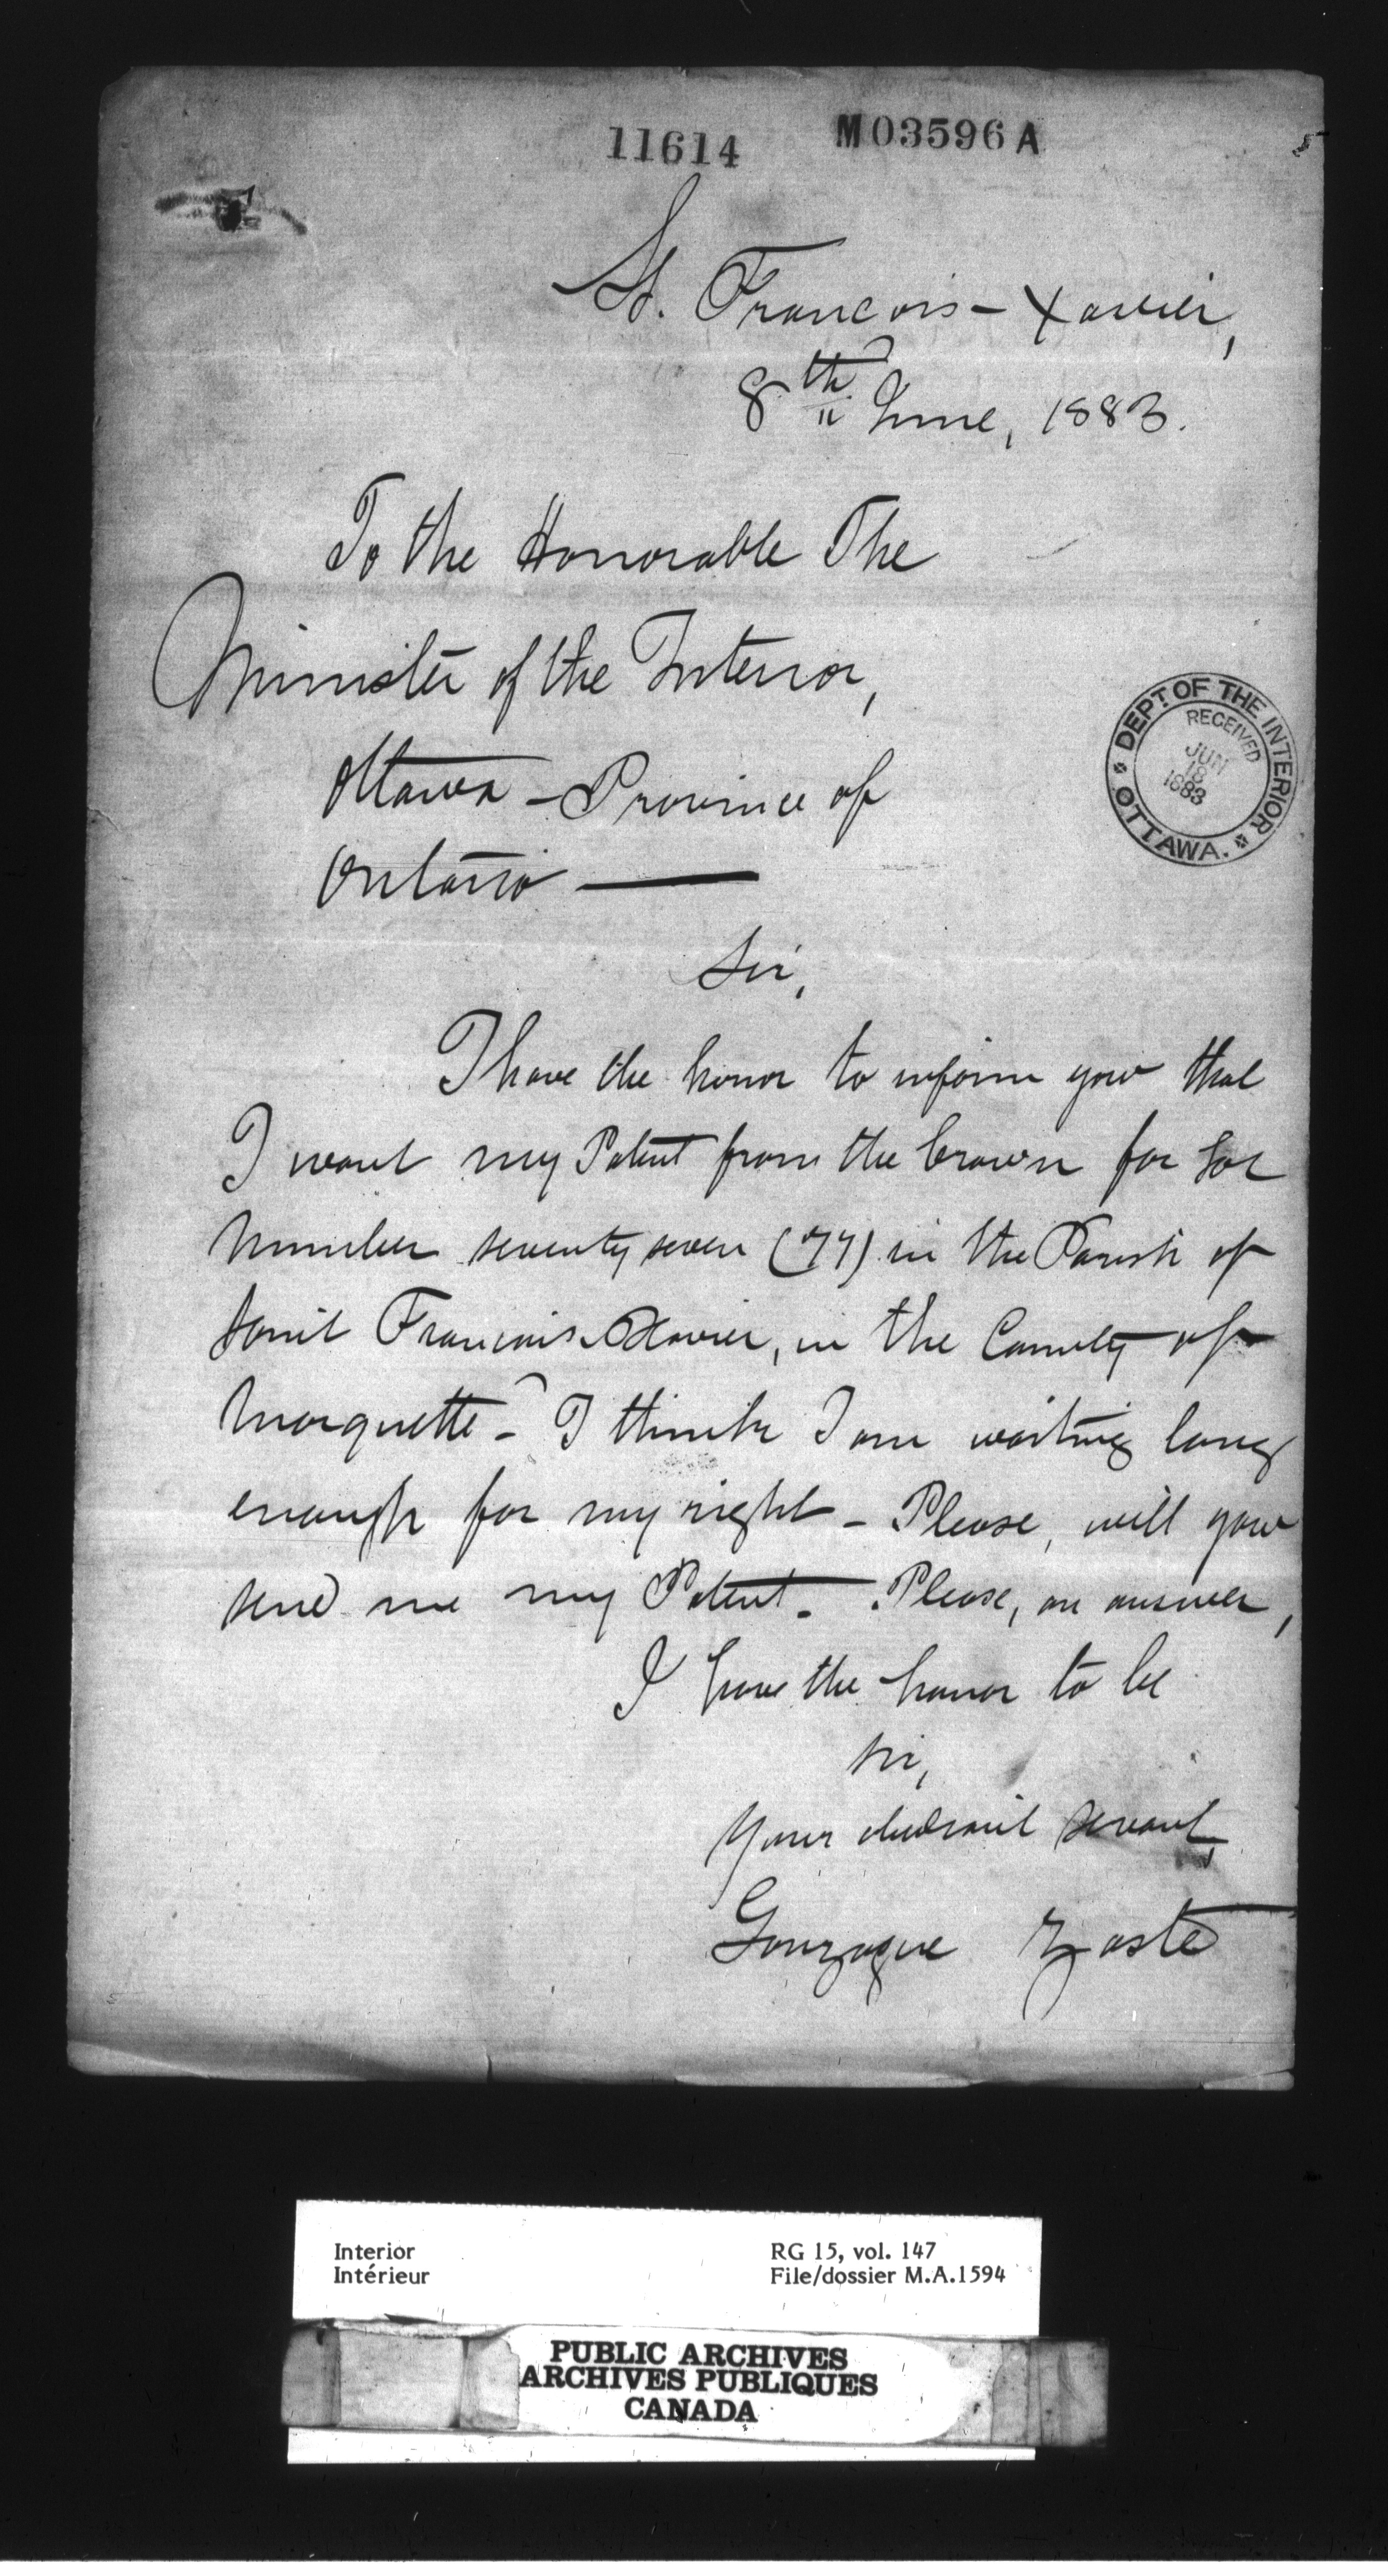 11614 M03596A
St. Francois - Xavier,
8th June, 1883.
To the Honorable The
Minister of the Interior,
Ottawa - Province of
Ontario —
Sir,
I have the honor to inform you that
I want my Patent from the Crown for Lot
Number seventy seven (77) in the Parish of
Saint Francois Xavier, in the County of
Marquette - I think I am waiting long
enough for my right - Please, will you
send me my Patent - Please, an answer,
I have the honor to be
Sir,
Your servant,
Gonzague Zaste
DEPT OF THE INTERIOR
RECEIVED
JUN
18
1883
OTTAWA.
Interior RG 15, vol. 147
Intérieur File/dossier M.A.1594
PUBLIC ARCHIVES
ARCHIVES PUBLIQUES
CANADA